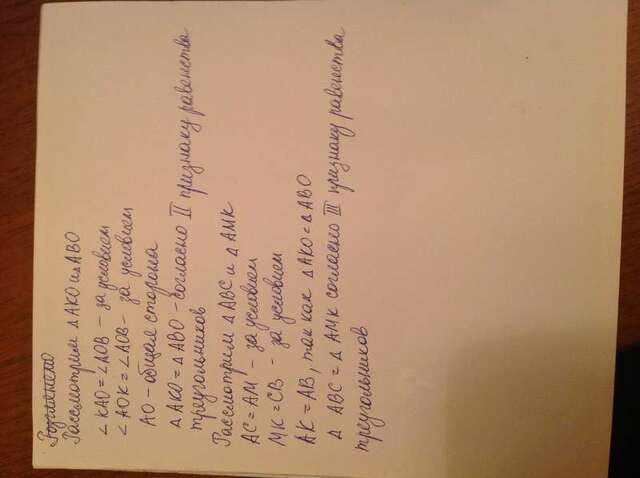 Рассмотрим △ AKO и △ ABO
∠ KAO = ∠ AOB - за условием
∠ AOK = ∠ AOB - за условием
AO - общая сторона
△ AKO = △ ABO - согласно II признаку равенства
треугольников
Рассмотрим △ ABC и △ AMK
AC = AM - за условием
MK = CB - за условием
AK = AB, так как △ AKO = △ ABO
△ ABC = △ AMK согласно III признаку равенства
треугольников